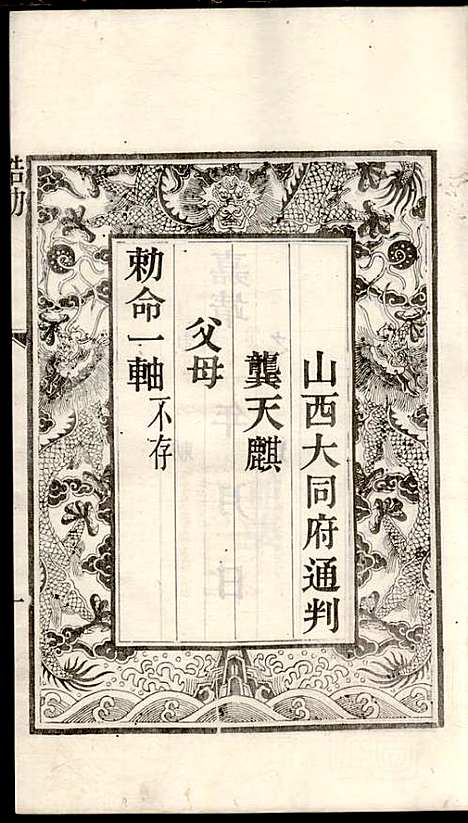 山西大同府通判
龔天麒
父母
勅命一軸不存
誥勅
一